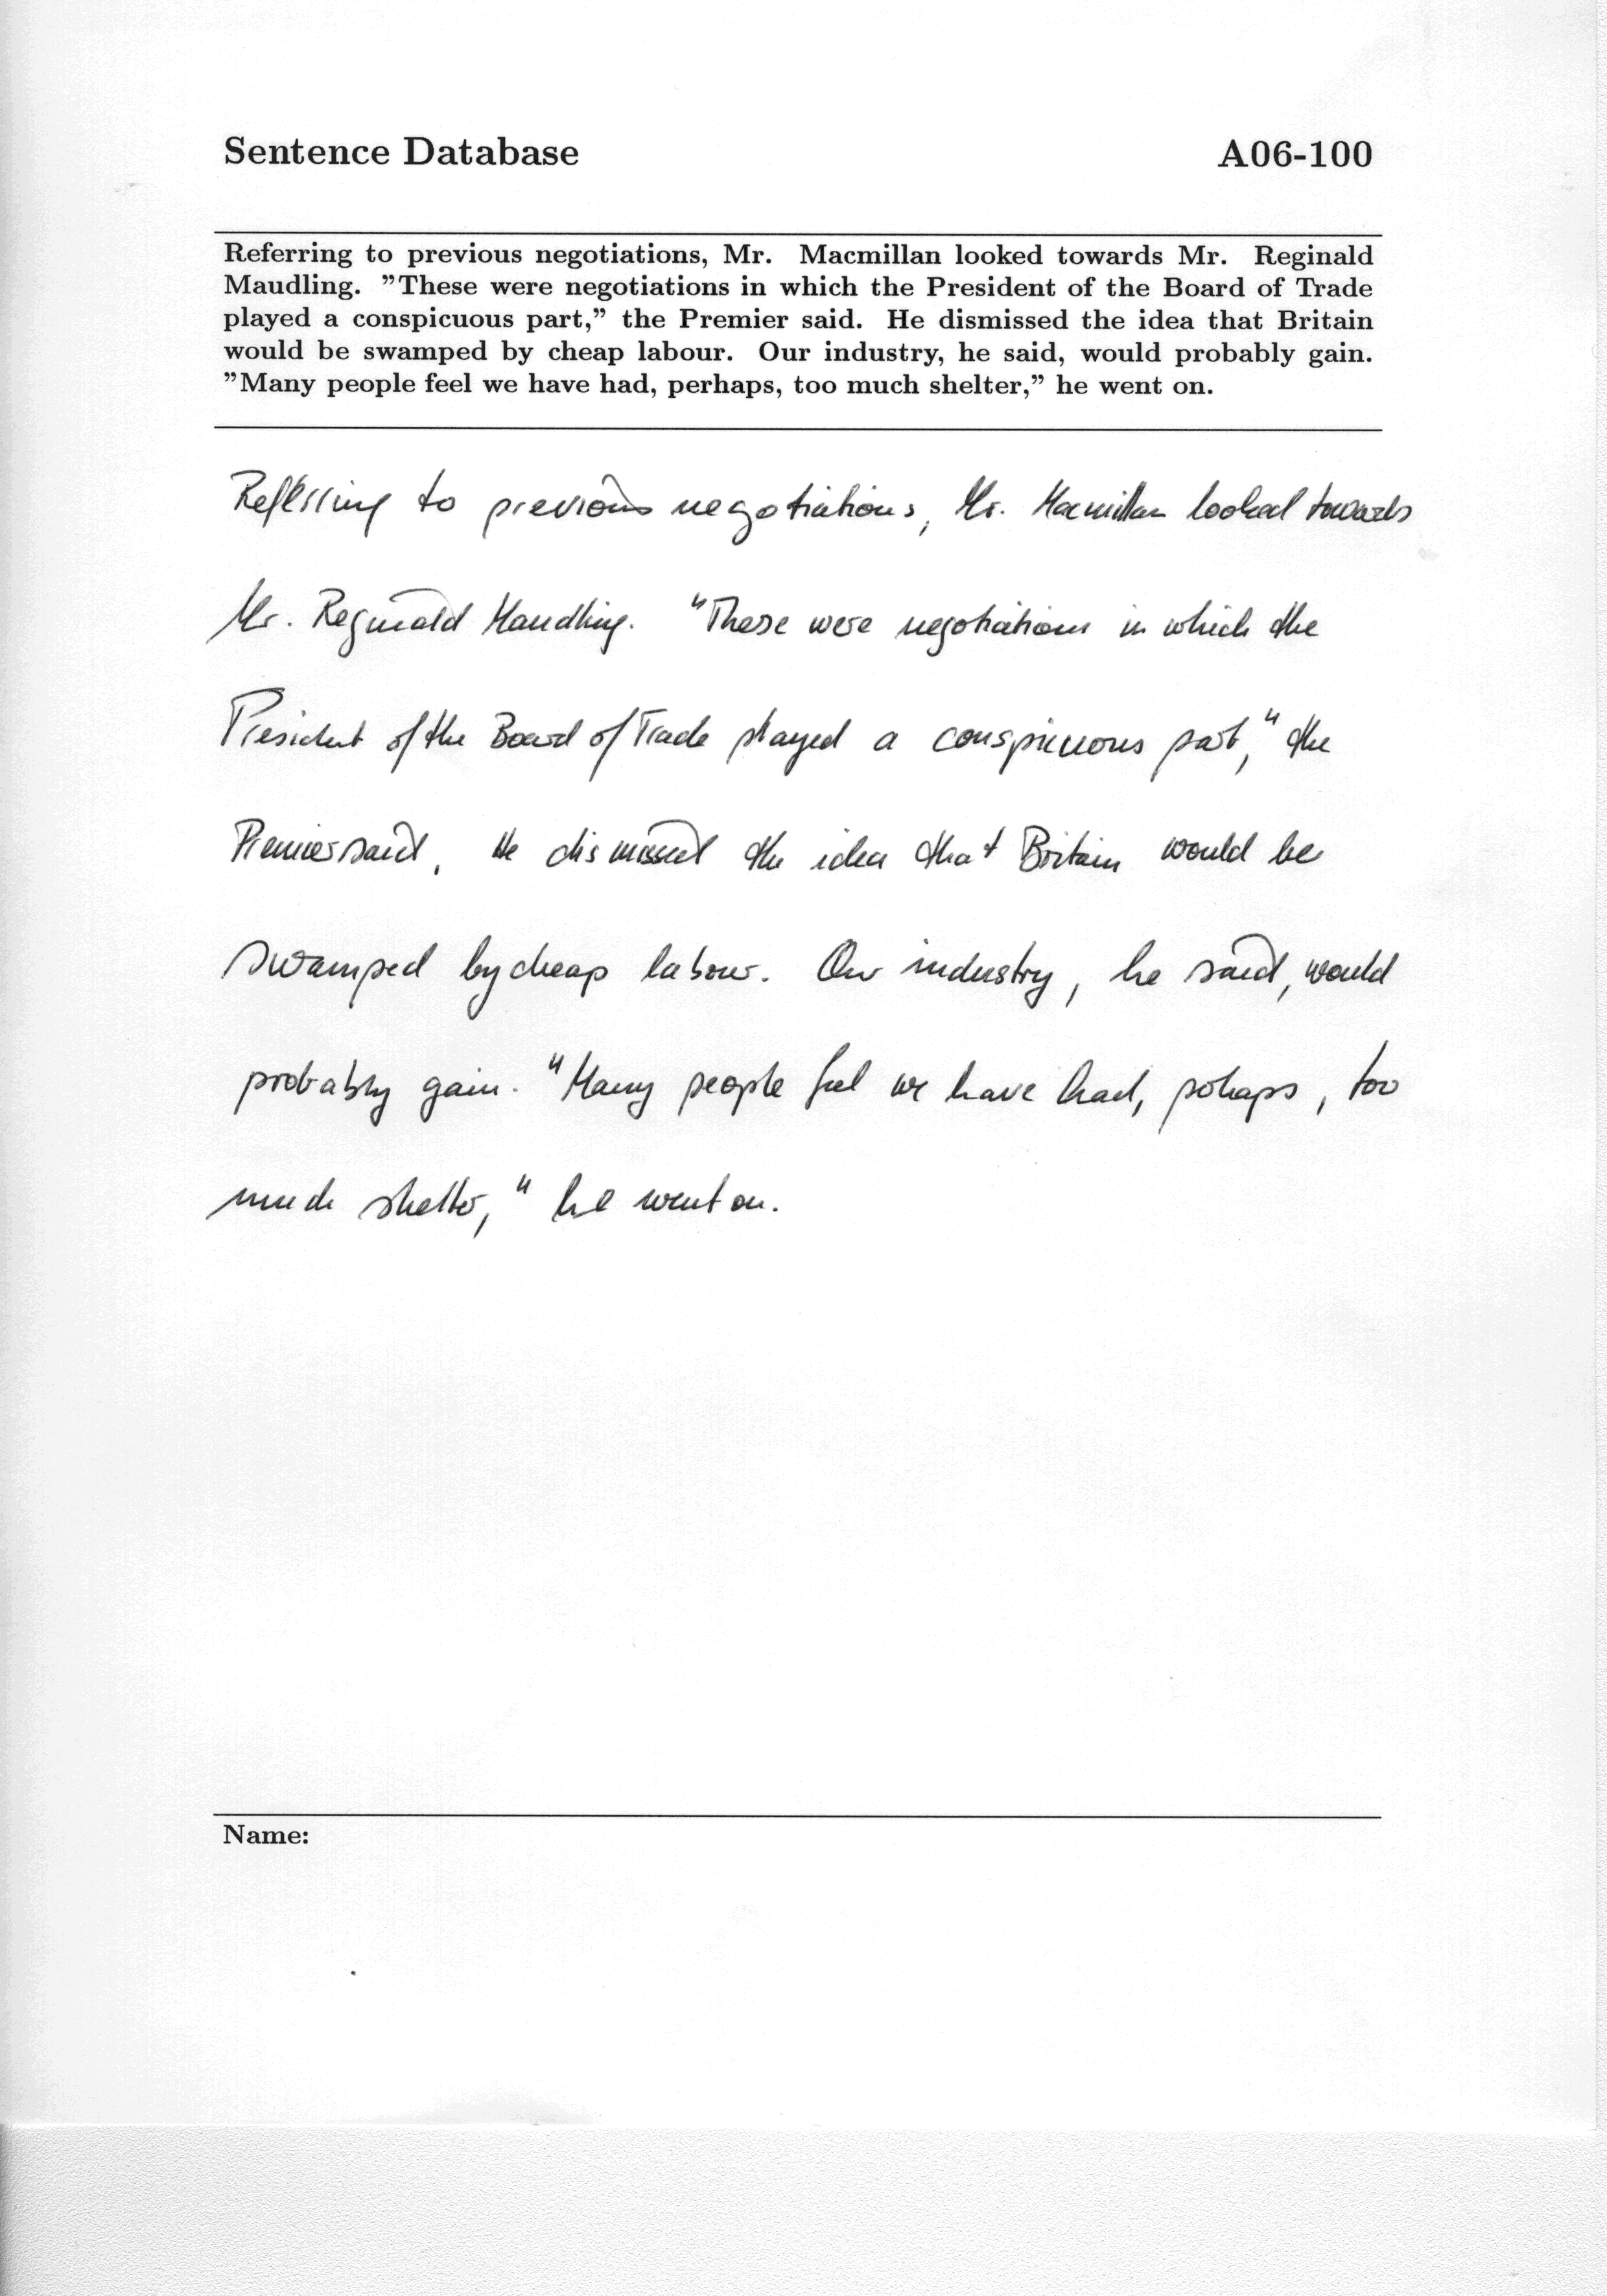 Sentence Database A06-100
Referring to previous negotiations, Mr. Macmillan looked towards Mr. Reginald
Maudling. ”These were negotiations in which the President of the Board of Trade
played a conspicuous part,” the Premier said. He dismissed the idea that Britain
would be swamped by cheap labour. Our industry, he said, would probably gain.
”Many people feel we have had, perhaps, too much shelter,” he went on.
Referring to previous negotiations, Mr. Macmillan looked towards
Mr. Reginald Maudling. "These were negotiations in which the
President of the Board of Trade played a conspicuous part," the
Premier said. He dismissed the idea that Britain would be
swamped by cheap labour. Our industry, he said, would
probably gain. "Many people feel we have had, perhaps, too
much shelter," he went on.
Name: